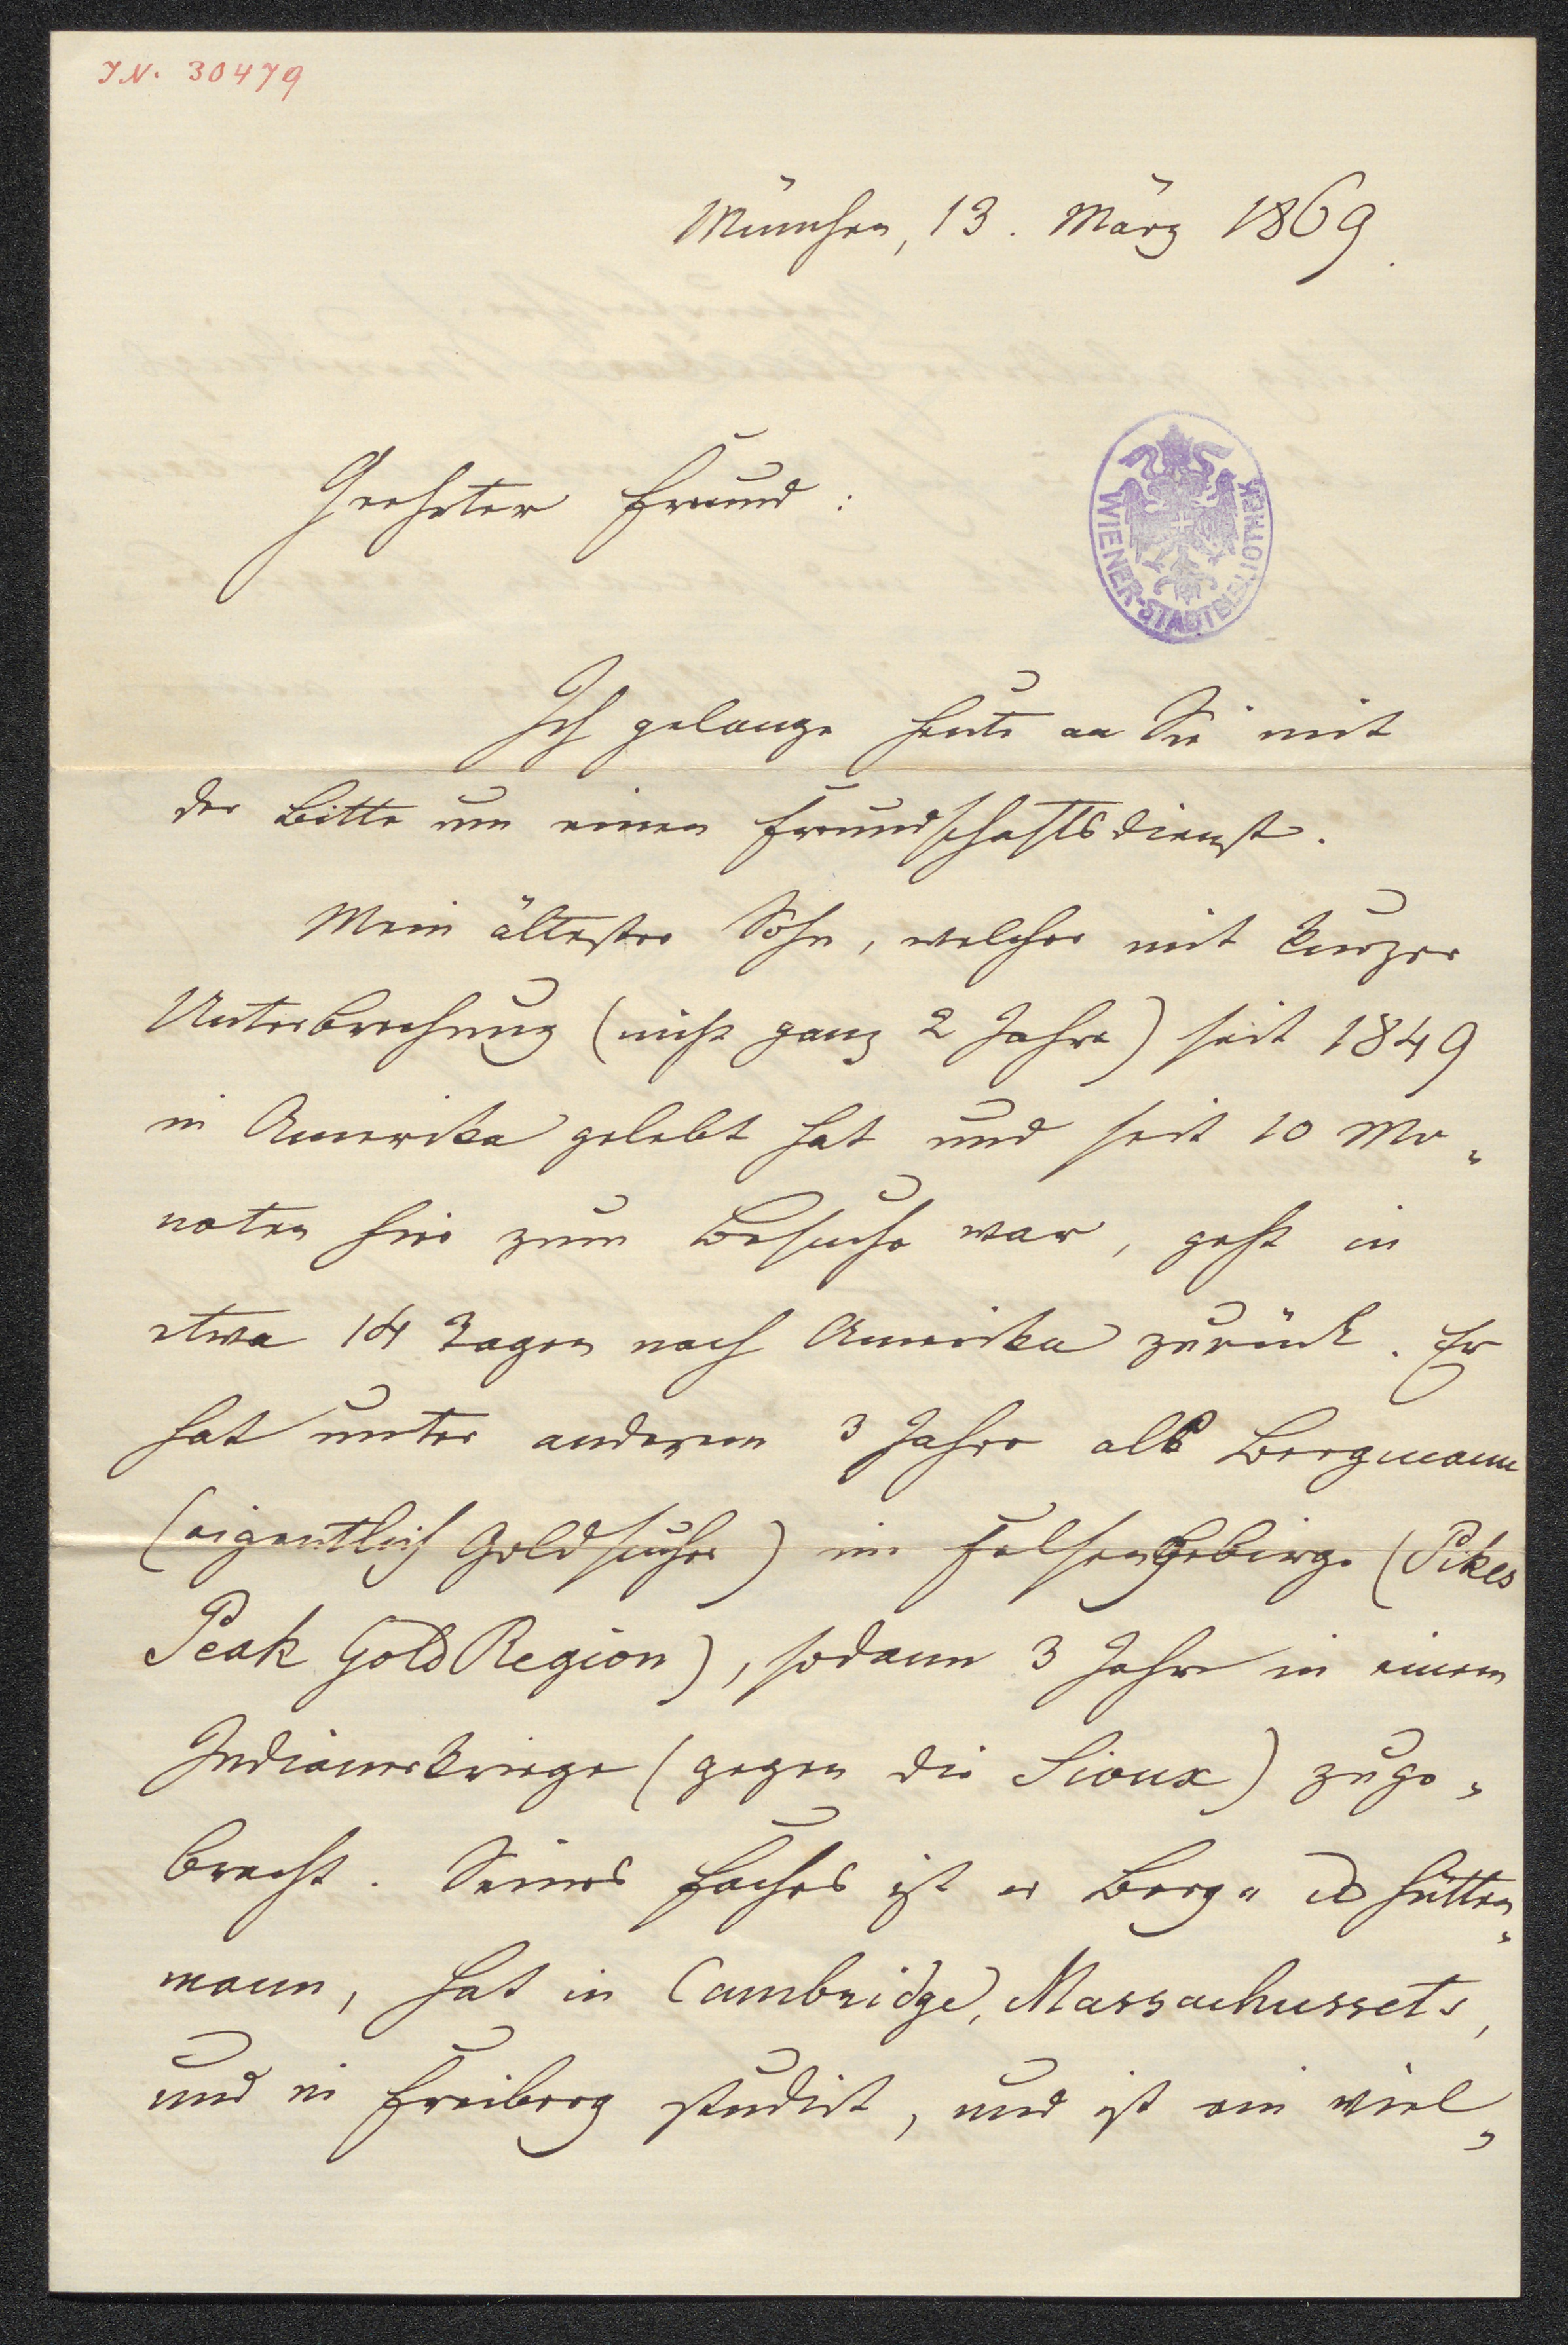 J.N. 30479
München, 13. März 1869.
Geehrter Freund:
WIENER-STADTBIBLIOTHEK
Ich gelange heute an Sie mit
der Bitte um einen Freundschaftsdienst.
Mein ältester Sohn, welcher mit kurzer
Unterbrechung (nicht ganz 2 Jahre) seit 1849
in Amerika gelebt hat und seit 10 Mo-
naten hier zum Besuche war, geht in
etwa 14 Tagen nach Amerika zurück. Er
hat unter anderem 3 Jahre als Bergmann
(eigentlich Goldsucher) im Felsengebirge (Pikes
Peak Gold Region), sodann 3 Jahre in einem
Indianerkriege (gegen die Sioux) zuge-
bracht. Seines Faches ist er Berg- u Hütten-
mann, hat in Cambridge, Massachussets,
und in Freiberg studirt, und ist ein viel-